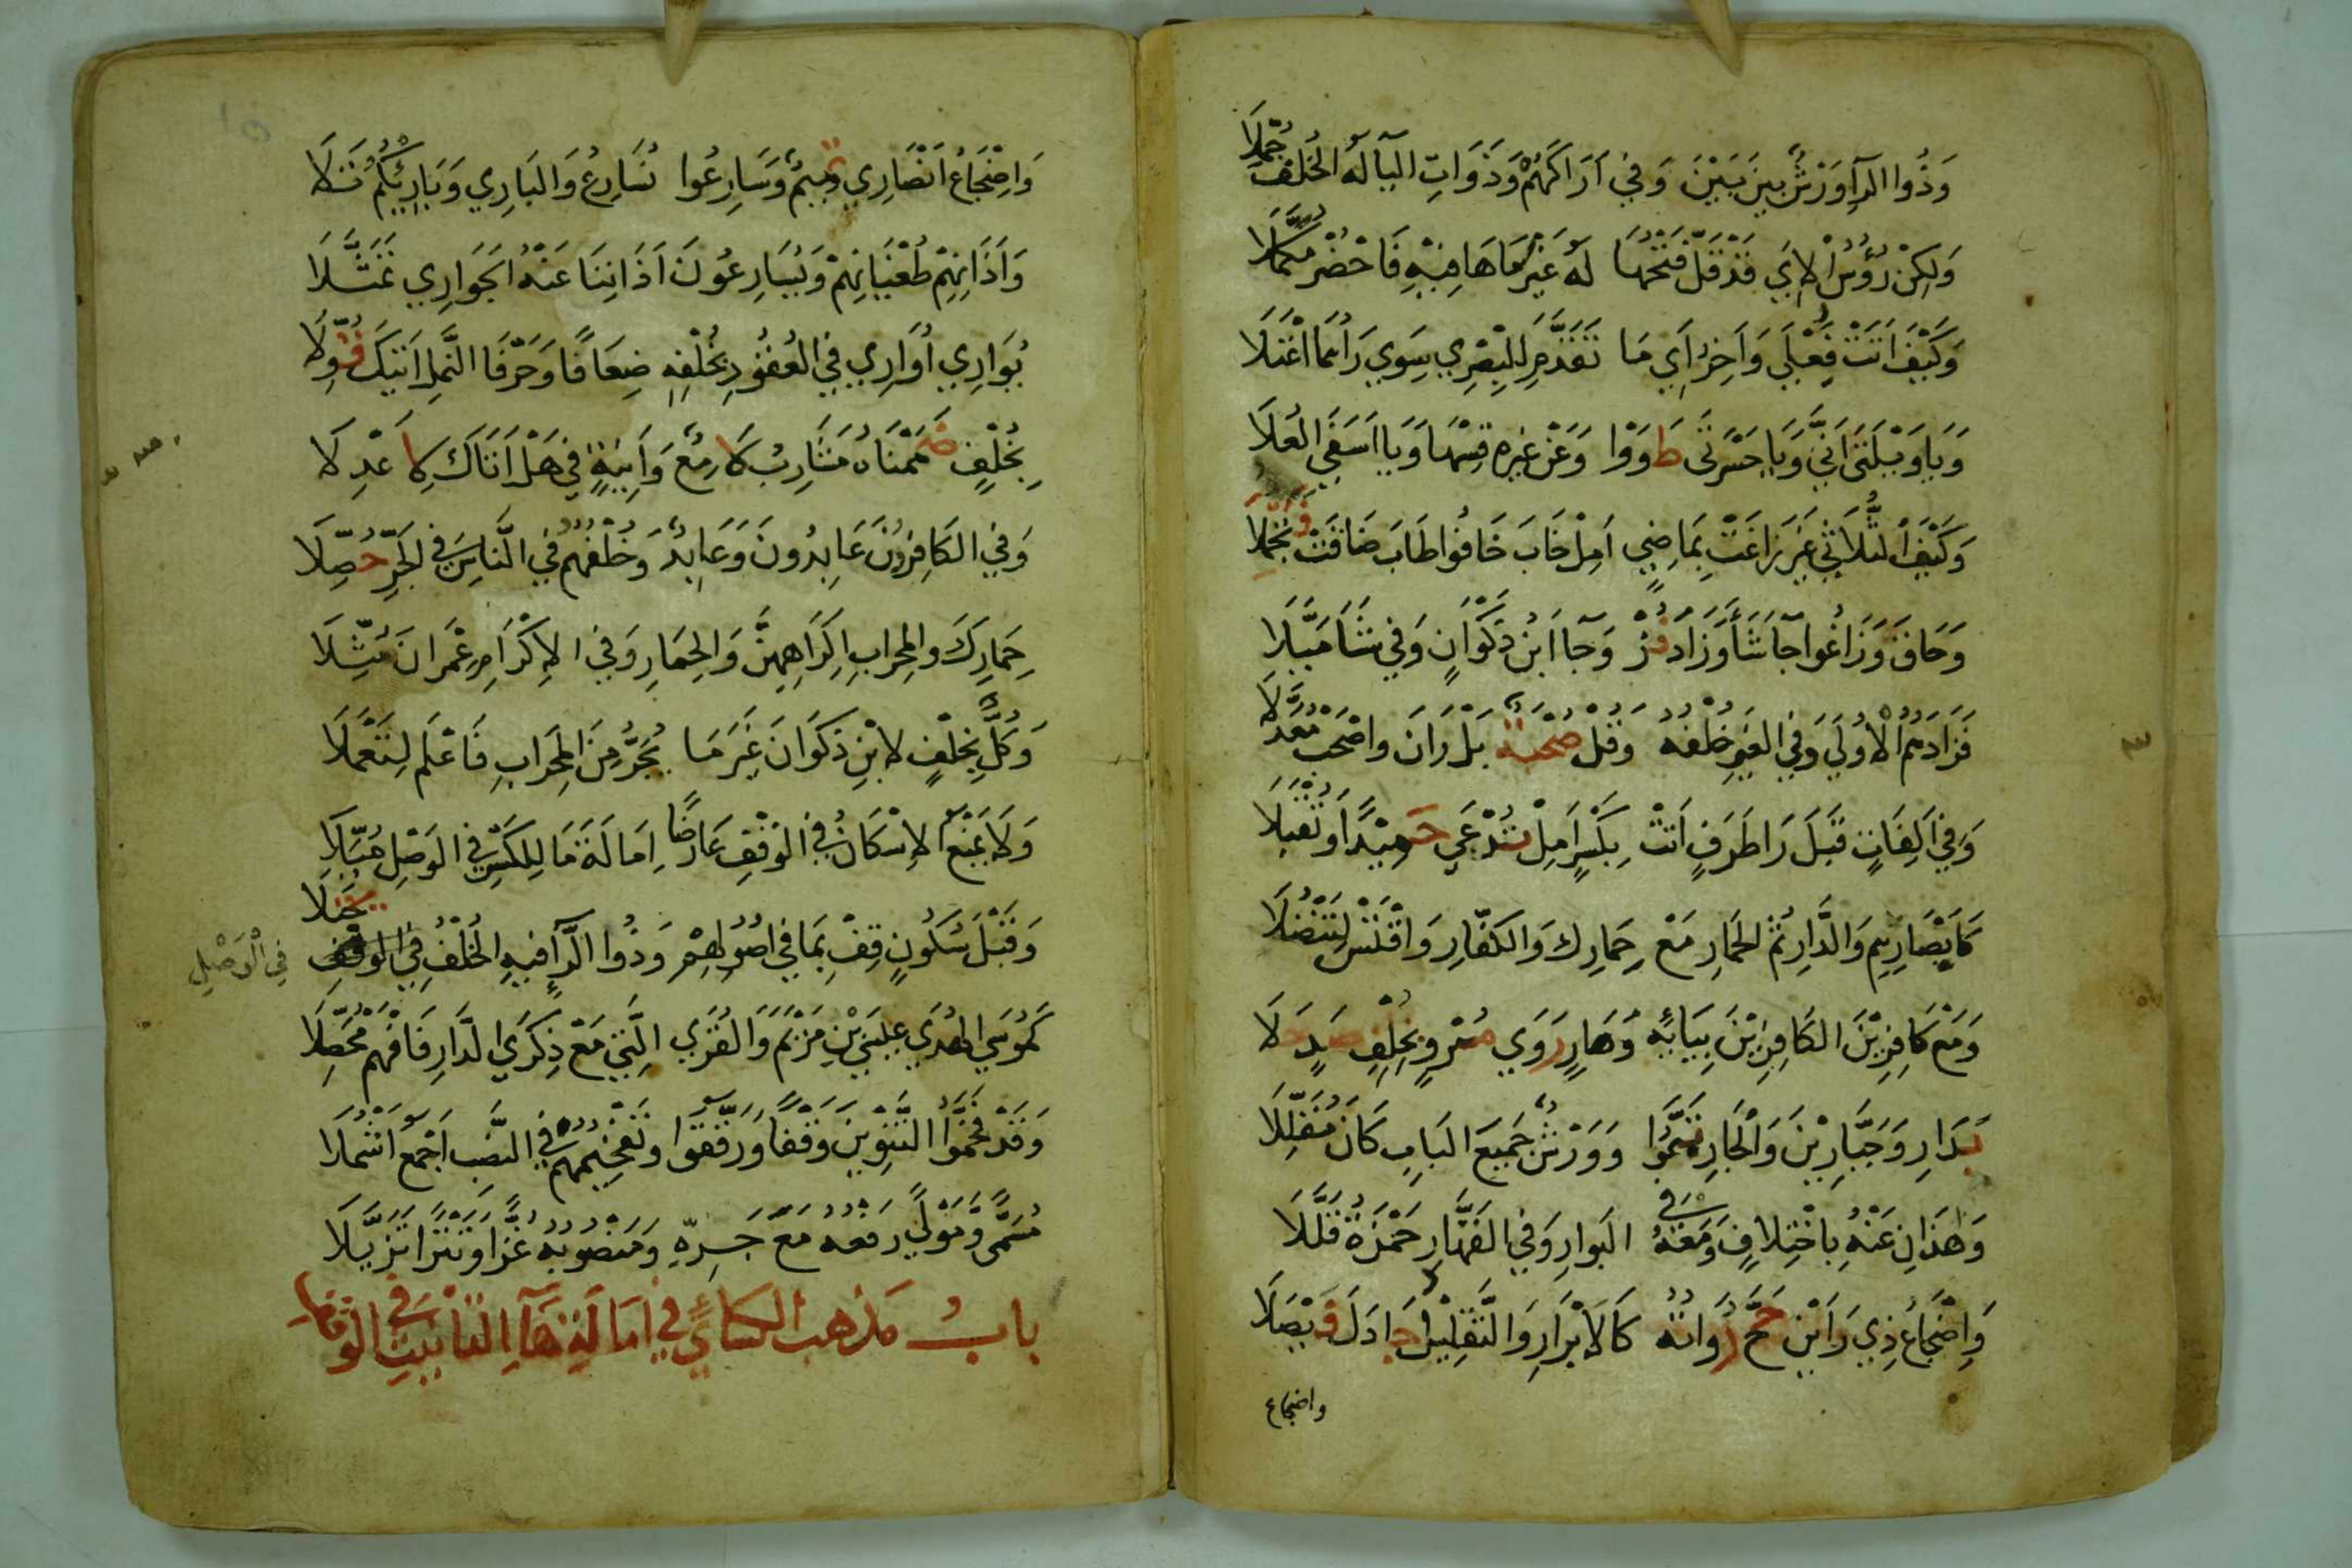 وَذُوا الرَّآ وَرْشٌ بَيْنَ بَيْنَ وَفِي أَرَاكَهُمْ وَذَوَاتِ الْيَآ لَهُ الْخُلْفُ جُمِّلَا
وَلَكِنْ رُؤُسُ الْآيِ قَدْ قَلَّ فَتْحُهَا لَهُ غَيْرَ مَا هَا فِيْهِ فَاحْضُرْ مُكَمَّلَا
وَكَيْفَ اَتَتْ فُعْلَي وَآخِرُ آيِ مَا تَقَدَّمَ لِلْبَصْرِي سِوَي رَاهُمَا اعْتَلَا
وَيَا وَيْلَتَى اَنَّى وَيَا حَسْرَتَى طَوَوْا وَعَنْ غَيْرِهِ قِسْهَا وَيَا اَسَفَي الْعُلَا
وَكَيْفَ الثُّلَاثِي غَيْرَ زَاغَتْ بِمَاضِيٍ اَمِلْ خَابَ خَافُوا طَابَ ضَاقَتْ فَتُجْمِلَا
وَحَاقَ وَزَاغُوا جَآ شَآ وَزَادَ فُزْ وَجَآ ابْنُ ذَكْوَانٍ وَفِي شَآ مَيَّلَا
فَزَادَهُمُ الْاُولَي وَفِي الْغَيْرِ خُلْفُهُ وَقُلْ صُحْبَةٌ بَلْ رَانَ وَاصْحَبْ مُعَدَّلَا
وَفِي اَلِفَاتٍ قَبْلَ رَا طَرَفٍ اَتَتْ بِكَسْرٍ اَمِلْ تُدْعَي حَمِيْدًا وَتُقْبَلَا
كَاَبْصَارِهِمْ وَالدَّارِ ثُمَّ الْحِمَارِ مَعْ حِمَارِكَ وَالْكُفَّارِ وَاقْتَسْ لِتَنْضُلَا
وَمَعْ كَافِرِيْنَ الْكَافِرِيْنَ بِيَائِهِ وَهَارٍ رَوَي مُرْوٍ بِخُلْفٍ صَدٍ حَلَا
بَدَارِ وَجَبَّارِيْنَ وَالْجَارِ تَمَّمُوا وَوَرْشٌ جَمِيْعَ الْبَابِ كَانَ مُقَلِّلَا
وَهَذَانِ عَنْهُ بِاخْتِلَافٍ وَمَعْهُ فِي الْبَوَارِ وَفِي الْقَهَّارِ حَمْزَةُ قَلَّلَا
وَاِضْجَاعُ ذِي رَاَيْنِ حَجَّ رُوَاتُهُ كَالْاَبْرَارِ وَالتَّقْلِيْلُ جَادَلَ فَيْصَلَا
واضجاع
وَاِضْجَاعُ اَنْصَارِي تَمِيْمٌ وَسَارِعُوا نُسَارِعُ وَالْبَارِي وَبَارِئِكُمْ تَلَا
وَآذَانِهِمْ طُغْيَانِهِمْ وَيُسَارِعُونَ آذَانِنَا عَنْهُ الْجَوَارِي تَمَثَّلَا
يُوَارِي أُوَارِي فِي الْعُقُودِ بِخُلْفِهِ ضِعَافًا وَحَرْفَا النَّمْلِ اَتِيْكَ قُوِّلَا
بِخُلْفٍ ضَمَمْنَاهُ مَشَارِبُ لَامِعٌ وَآنِيَةٍ فِي هَلْ اَتَاكَ لِاَعْدِلَا
وَفِي الْكَافِرُونَ عَابِدُونَ وَعَابِدٌ وَخُلْفُهُمُ فِي النَّاسِ فِي الْجَرِّ حُصِّلَا
حِمَارِكَ وَالْمِحْرَابِ اِكْرَاهِهِنَّ وَالْحِمَارِ وَفِي الْاِكْرَامِ عِمْرَانَ مُثِّلَا
وَكُلٌّ بِخُلْفٍ لِابْنِ ذَكْوَانَ غَيْرَ مَا يُجَرُّ مِنَ الْمِحْرَابِ فَاعْلَمْ لِتَعْمَلَا
وَلَا يَمْنَعُ الْاِسْكَانُ فِي الْوَقْفِ عَارِضًا اِمَالَةَ مَا لِلْكَسْرِ فِي الْوَصْلِ مُيِّلَا
وَقَبْلَ سُكُونٍ قِفْ بِمَا فِي اُصُولِهِمْ وَذُوا الرَّآ فِيهِ الْخُلْفُ فِي الْوَقْفِ يُجْتَلَا
فِي الْوَصْلِ
كَمُوسَي الْهُدَي عِيسَي بْنِ مَرْيَمَ وَالْقُرَي الَّتِي مَعَ ذِكْرَي الدَّارِ فَافْهَمْ مُحَصِّلَا
وَقَدْ فَخَّمُوا التَّنْوِيْنَ وَقْفًا وَرَقَّقُوا وَتَفْخِيْمُهُمْ فِي النَّصْبِ اَجْمَعُ اَشْمُلَا
مُسَمًّى وَمَوْلًي رَفْعُهُ مَعَ جَرِّهِ وَمَنْصُوبُهُ غُزًّا وَتَتْرًا تَزَيَّلَا
بابُ مَذْهَب الكِسَائِيِّ فِي اِمَالَةِ هَآءِ التَّانِيثِ فِي الْوَقْفِ